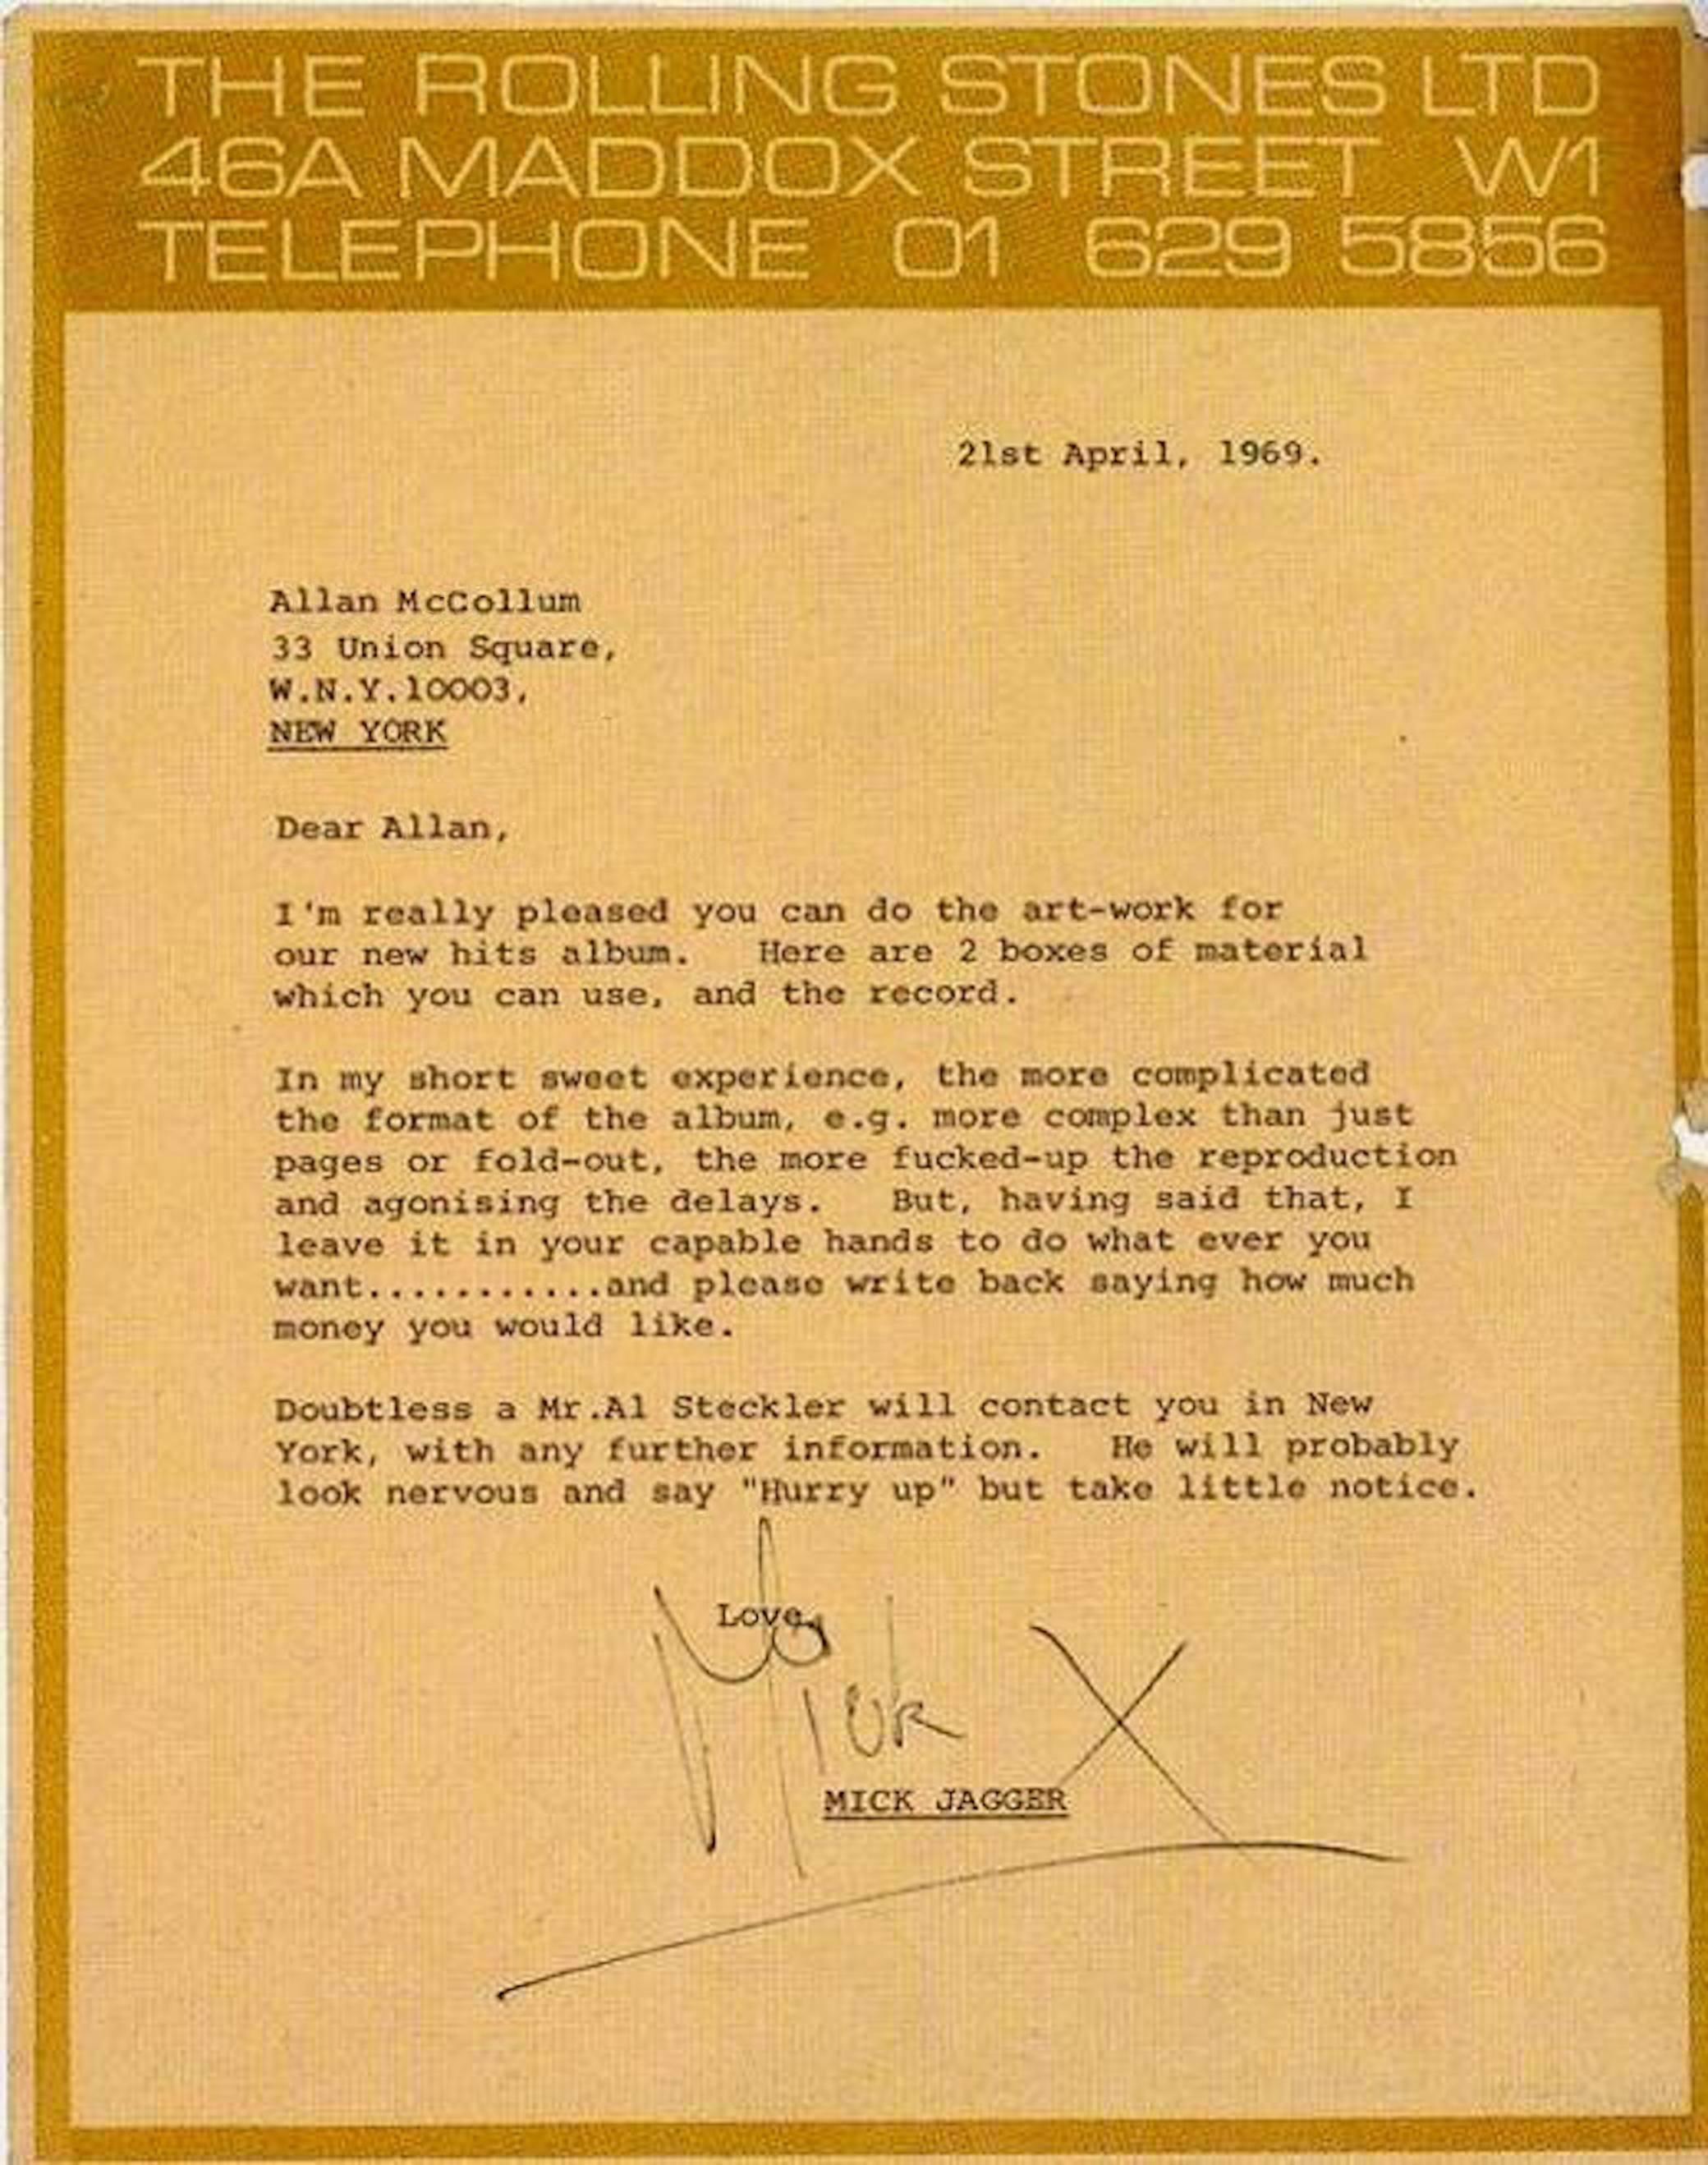 THE ROLLING STONES LTD
46A MADDOX STREET W1
TELEPHONE 01 629 5856
21st April, 1969.
Allan McCollum
33 Union Square,
W.N.Y.10003,
NEW YORK
Dear Allan,
I'm really pleased you can do the art-work for
our new hits album. Here are 2 boxes of material
which you can use, and the record.
In my short sweet experience, the more complicated
the format of the album, e.g. more complex than just
pages or fold-out, the more fucked-up the reproduction
and agonising the delays. But, having said that, I
leave it in your capable hands to do what ever you
want...........and please write back saying how much
money you would like.
Doubtless a Mr.Al Steckler will contact you in New
York, with any further information. He will probably
look nervous and say "Hurry up" but take little notice.
Love,
Mick X
MICK JAGGER